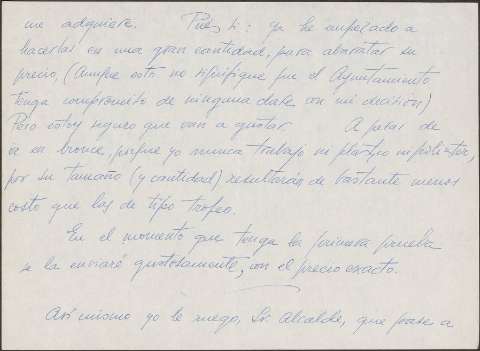 me adquiere. Pues sí: ya he empezado a
hacerlas en una gran cantidad, para abaratar su
precio, (Aunque esto no signifique que el Ayuntamiento
tenga compromiso de ninguna clase con mi decisión)
Pero estoy seguro que van a gustar. A pesar de
ir en bronce, porque yo nunca trabajo ni plástico ni poliester,
por su tamaño (y cantidad) resultarán de bastante menos
costo que las de tipo trofeo.
En el momento que tenga la primera prueba
se la enviaré gustosamente, con el precio exacto.
Así mismo yo le ruego, Sr. Alcalde, que pase a